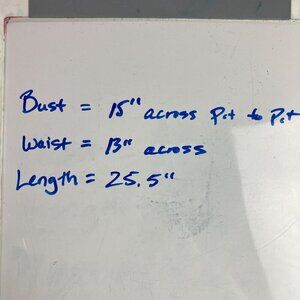 Bust = 15" across Pit to Pit
Waist = 13" across
Length = 25.5"